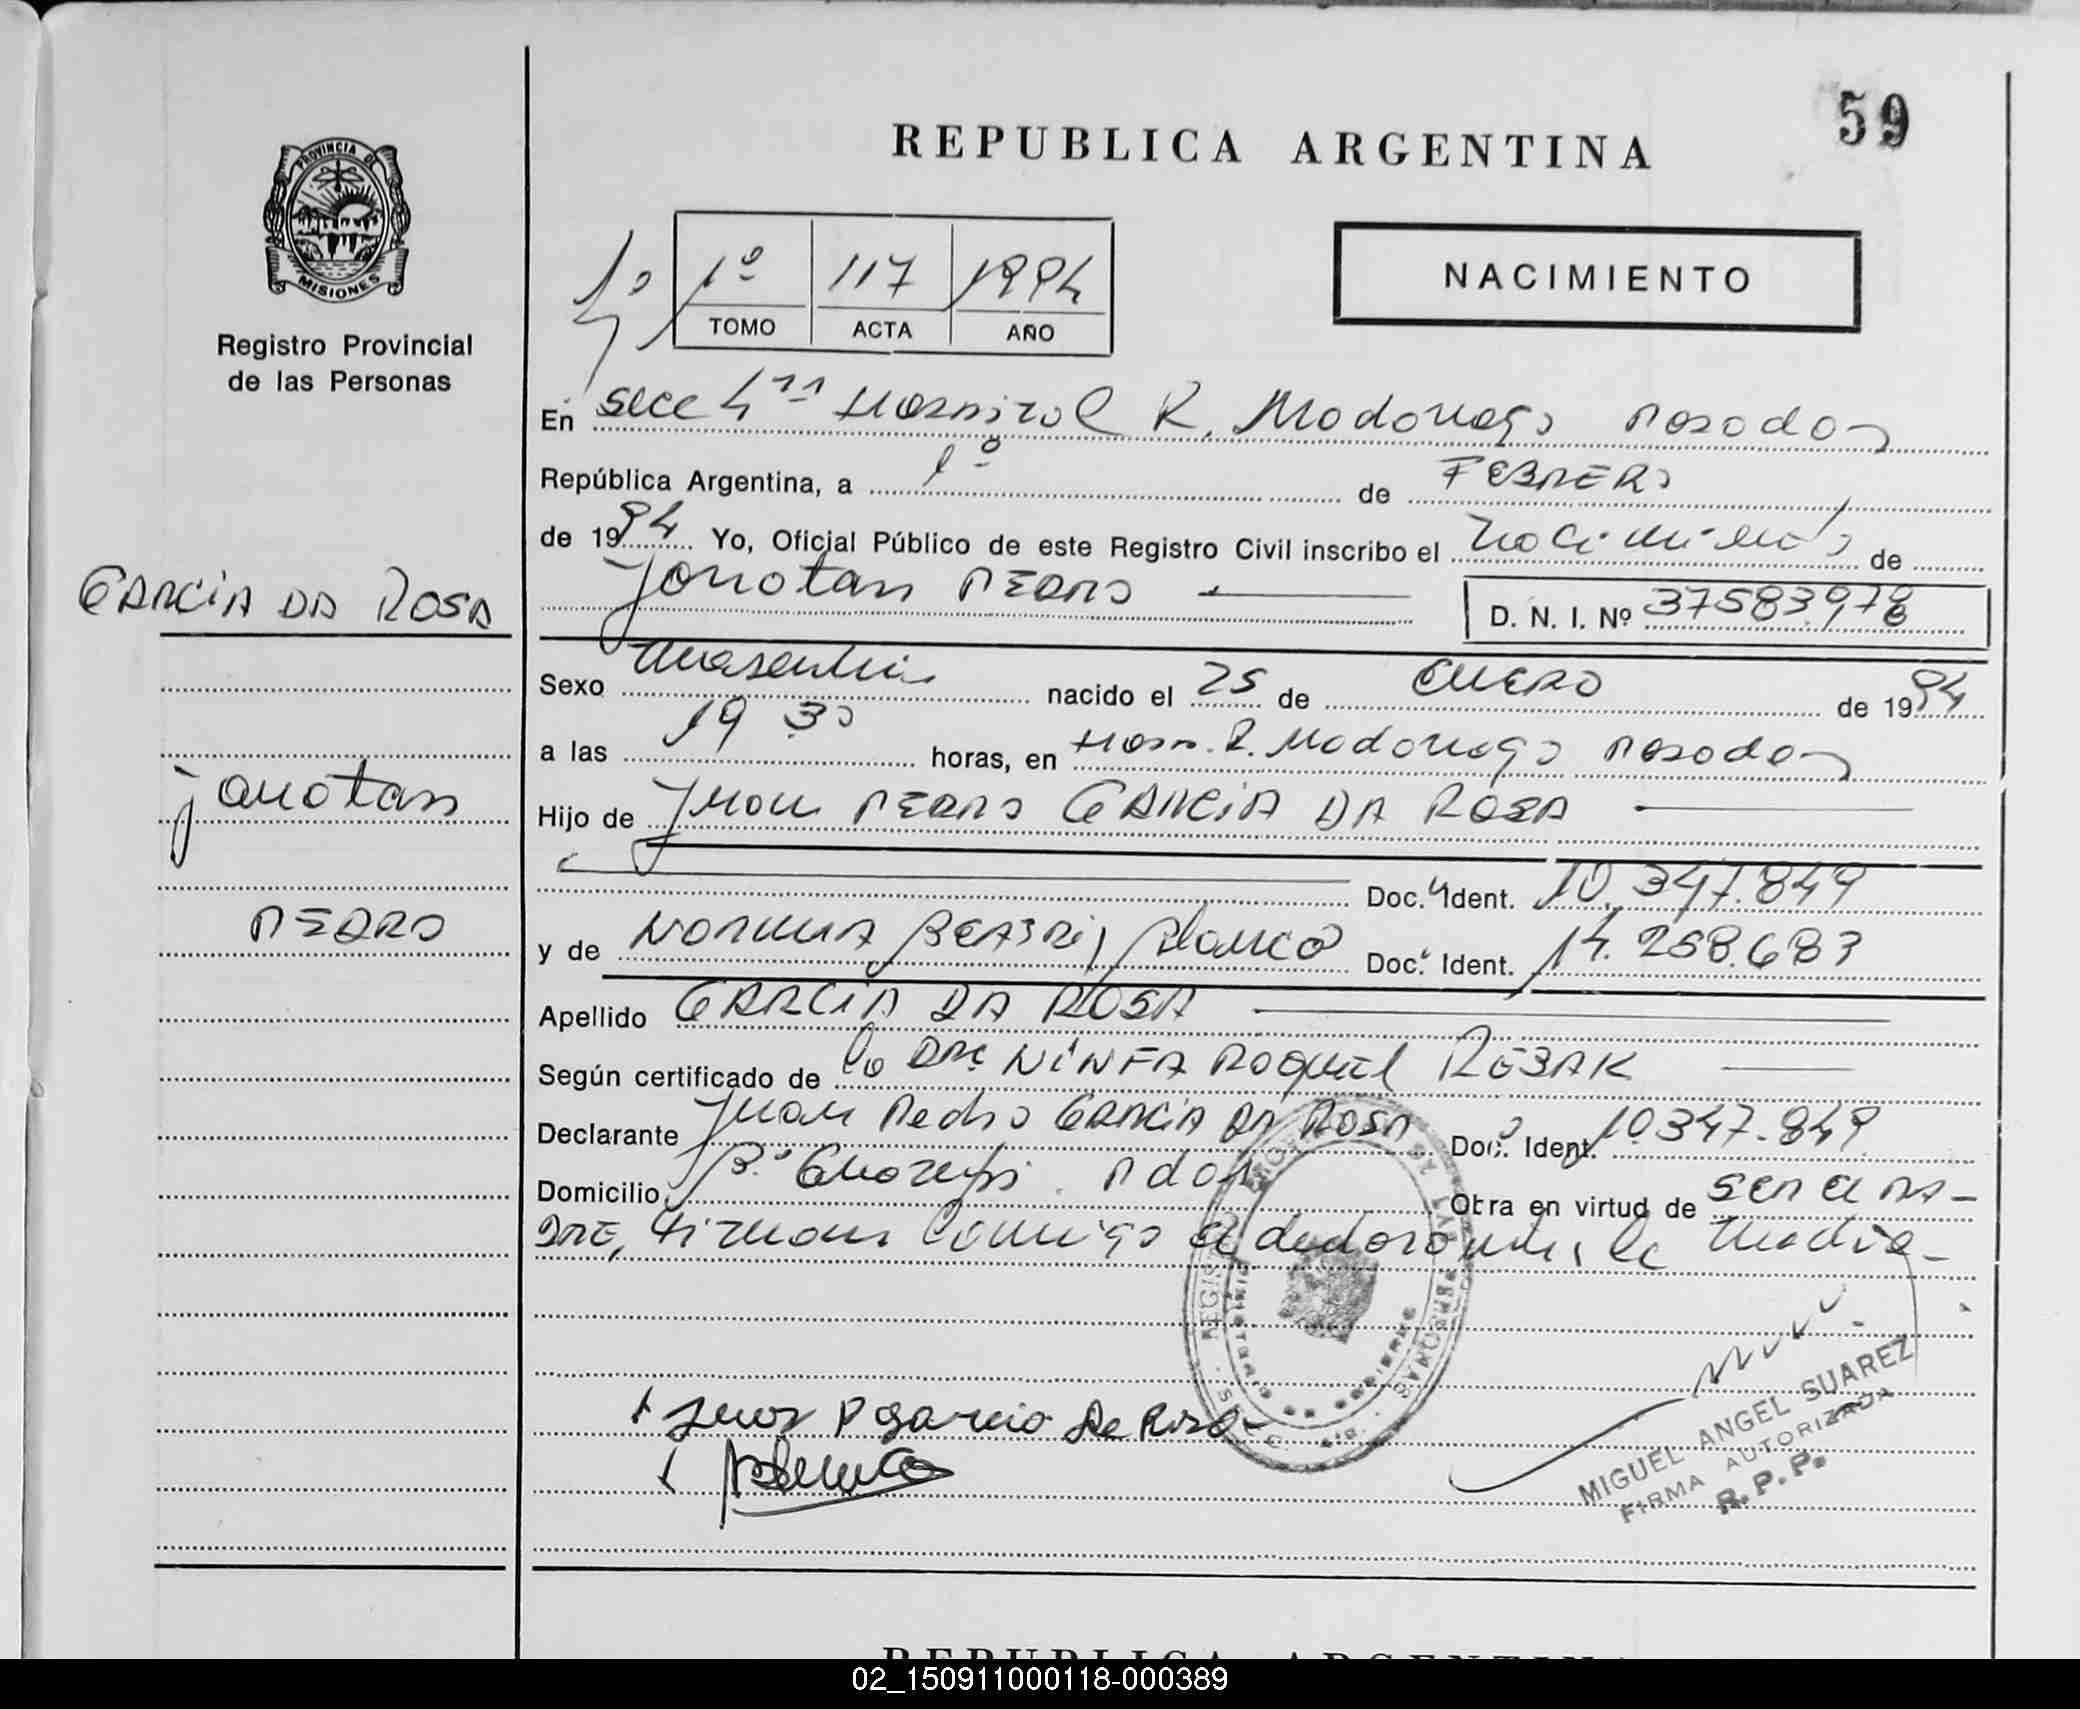 59
REPUBLICA ARGENTINA
PROVINCIA DE
MISIONES
Registro Provincial
de las Personas
1º 117 1994
TOMO ACTA AÑO
NACIMIENTO
En Secc 4ta Hospital R. Madariaga Posadas
República Argentina, a 1º de FEBRERO
de 1994 Yo, Oficial Público de este Registro Civil inscribo el nacimiento de
Jonatan PEDRO
D. N. I. Nº 37583978
GARCIA DA ROSA
Jonatan
PEDRO
Sexo masculino nacido el 25 de ENERO de 1994
a las 19 30 horas, en Hosp. R. Madariaga Posadas
Hijo de Juan PEDRO GARCIA DA ROSA
Doc. Ident. 10.347.849
y de NORMA BEATRIZ Blanco Doc. Ident. 14.258.683
Apellido GARCIA DA ROSA
Según certificado de la DRA NINFA RAQUEL REBAK
Declarante Juan Pedro GARCIA DA ROSA Doc. Ident. 10.347.849
Domicilio Bº Pdas Obra en virtud de SER EL PA-
DRE, firman conmigo el declarante, la madre-
Juan P Garcia Da Rosa
Blanco
MIGUEL ANGEL SUAREZ
FIRMA AUTORIZADA
R. P. P.
REPUBLICA ARGENTINA
02_150911000118-000389